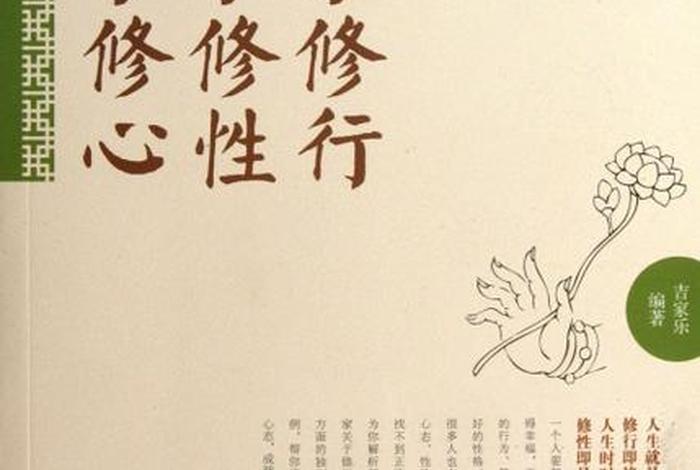 修行
修性
修心
吉家乐
编著
人生就
修行即
人生时
修性即
一个人要
得幸福，
的行为、
好的性格
很多人也
心态、性
找不到正
为你解析
家关于修
方面的独
例，帮你
心态，成就